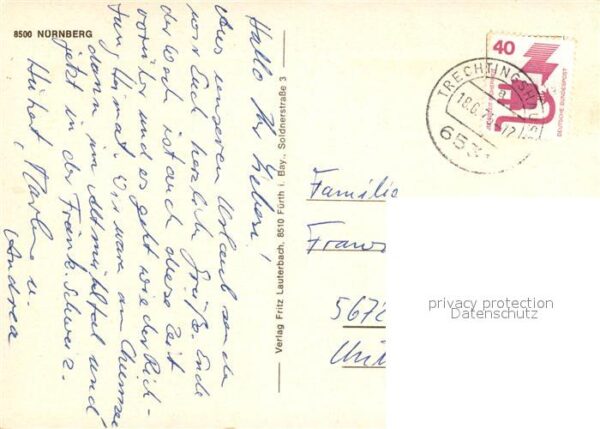 8500 NÜRNBERG
Hallo Ihr Lieben!
Aus unserem Urlaub senden
wir Euch herzliche Grüße. Ende
der Woche ist auch diese Zeit
vorüber und es geht wieder Rich-
tung Heimat. Wir waren am Chiemsee
dann im Altmühltal und
jetzt in der Fränk. Schweiz.
Hubert, Marlene u.
Andrea
Verlag Fritz Lauterbach, 8510 Fürth i. Bay., Soldnerstraße 3
40
DEUTSCHE BUNDESPOST
TRECHTINGSHAUSEN
653
Familie
Franz
5672
privacy protection
Datenschutz